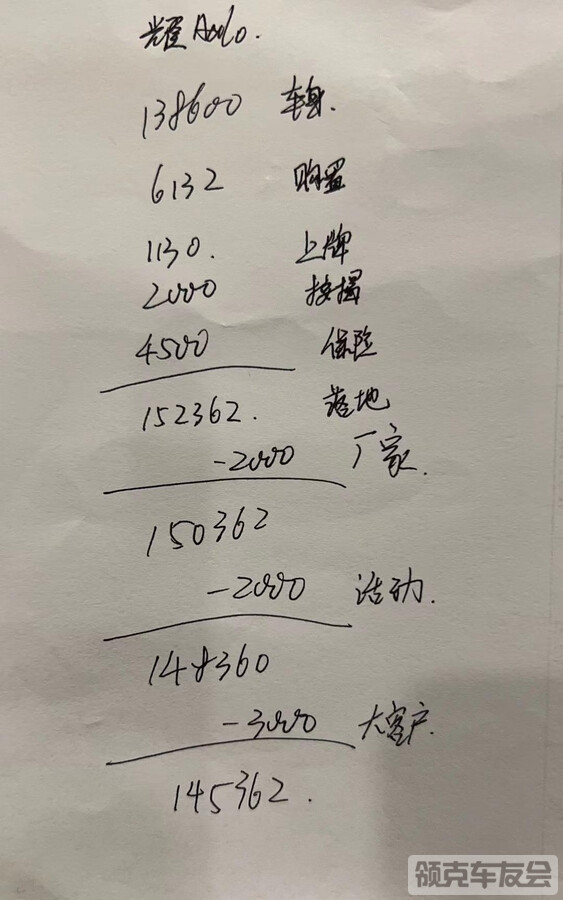 耀Halo.
138600 车身.
6132 购置
1130. 上牌
2000 按揭
4500 保险
152362. 落地
-2000 厂家.
150362
-2000 活动.
148360
-3000 大客户.
145362.
领克车友会